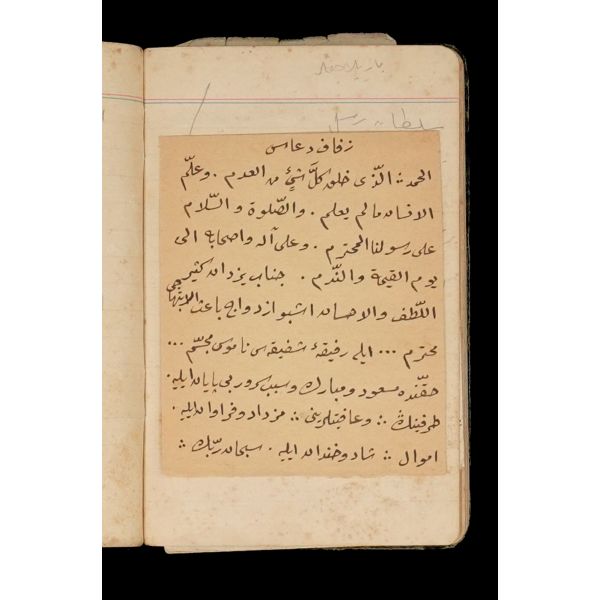 سلطان
زفاف دعاسى
الحمد لله الّذى خلق كلَّ شئٍ من العدم . وعلّم
الانسان مالم يعلم . والصّلوة والسّلام
على رسولنا المحترم . وعلى آله واصحابه الى
يوم القيمة والنّدم . جناب يزدان كثير
اللّطف والاحسان اشبو ازدواج باعث الابتهاجى
محترم ... ايله رفيقۀ شفيقه سى ناموس مجسّم ...
حقّنده مسعود ومبارك وسبب سرور بى پايان ايليه .
طرفينڭ ∴ وعافيتلرينى ∴ مزداد وفراوان ايليه .
اموال ∴ شاد وخندان ايليه . سبحان ربّك ∴